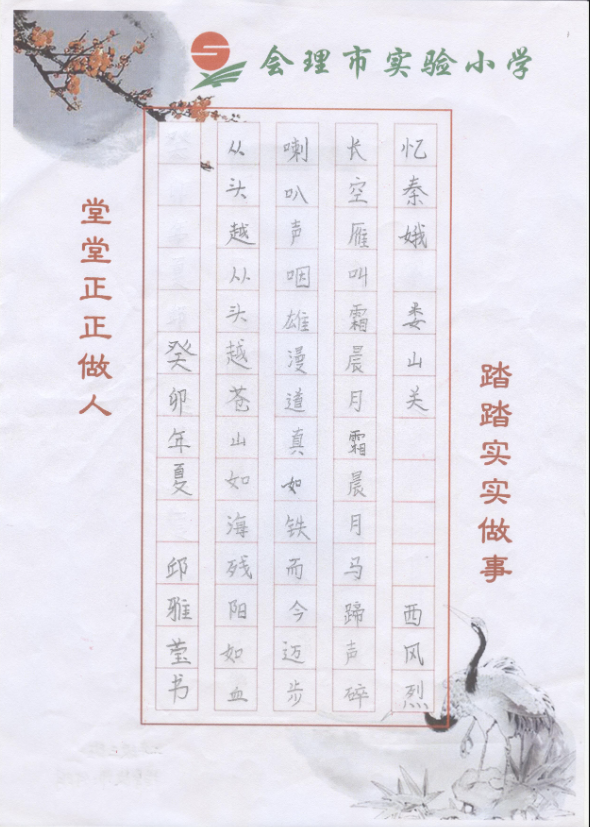 会理市实验小学
踏踏实实做事
忆秦娥 娄山关 西风烈
长空雁叫霜晨月霜晨月马蹄声碎
喇叭声咽雄漫道真如铁而今迈步
从头越从头越苍山如海残阳如血
癸卯年夏 邱雅莹书
堂堂正正做人